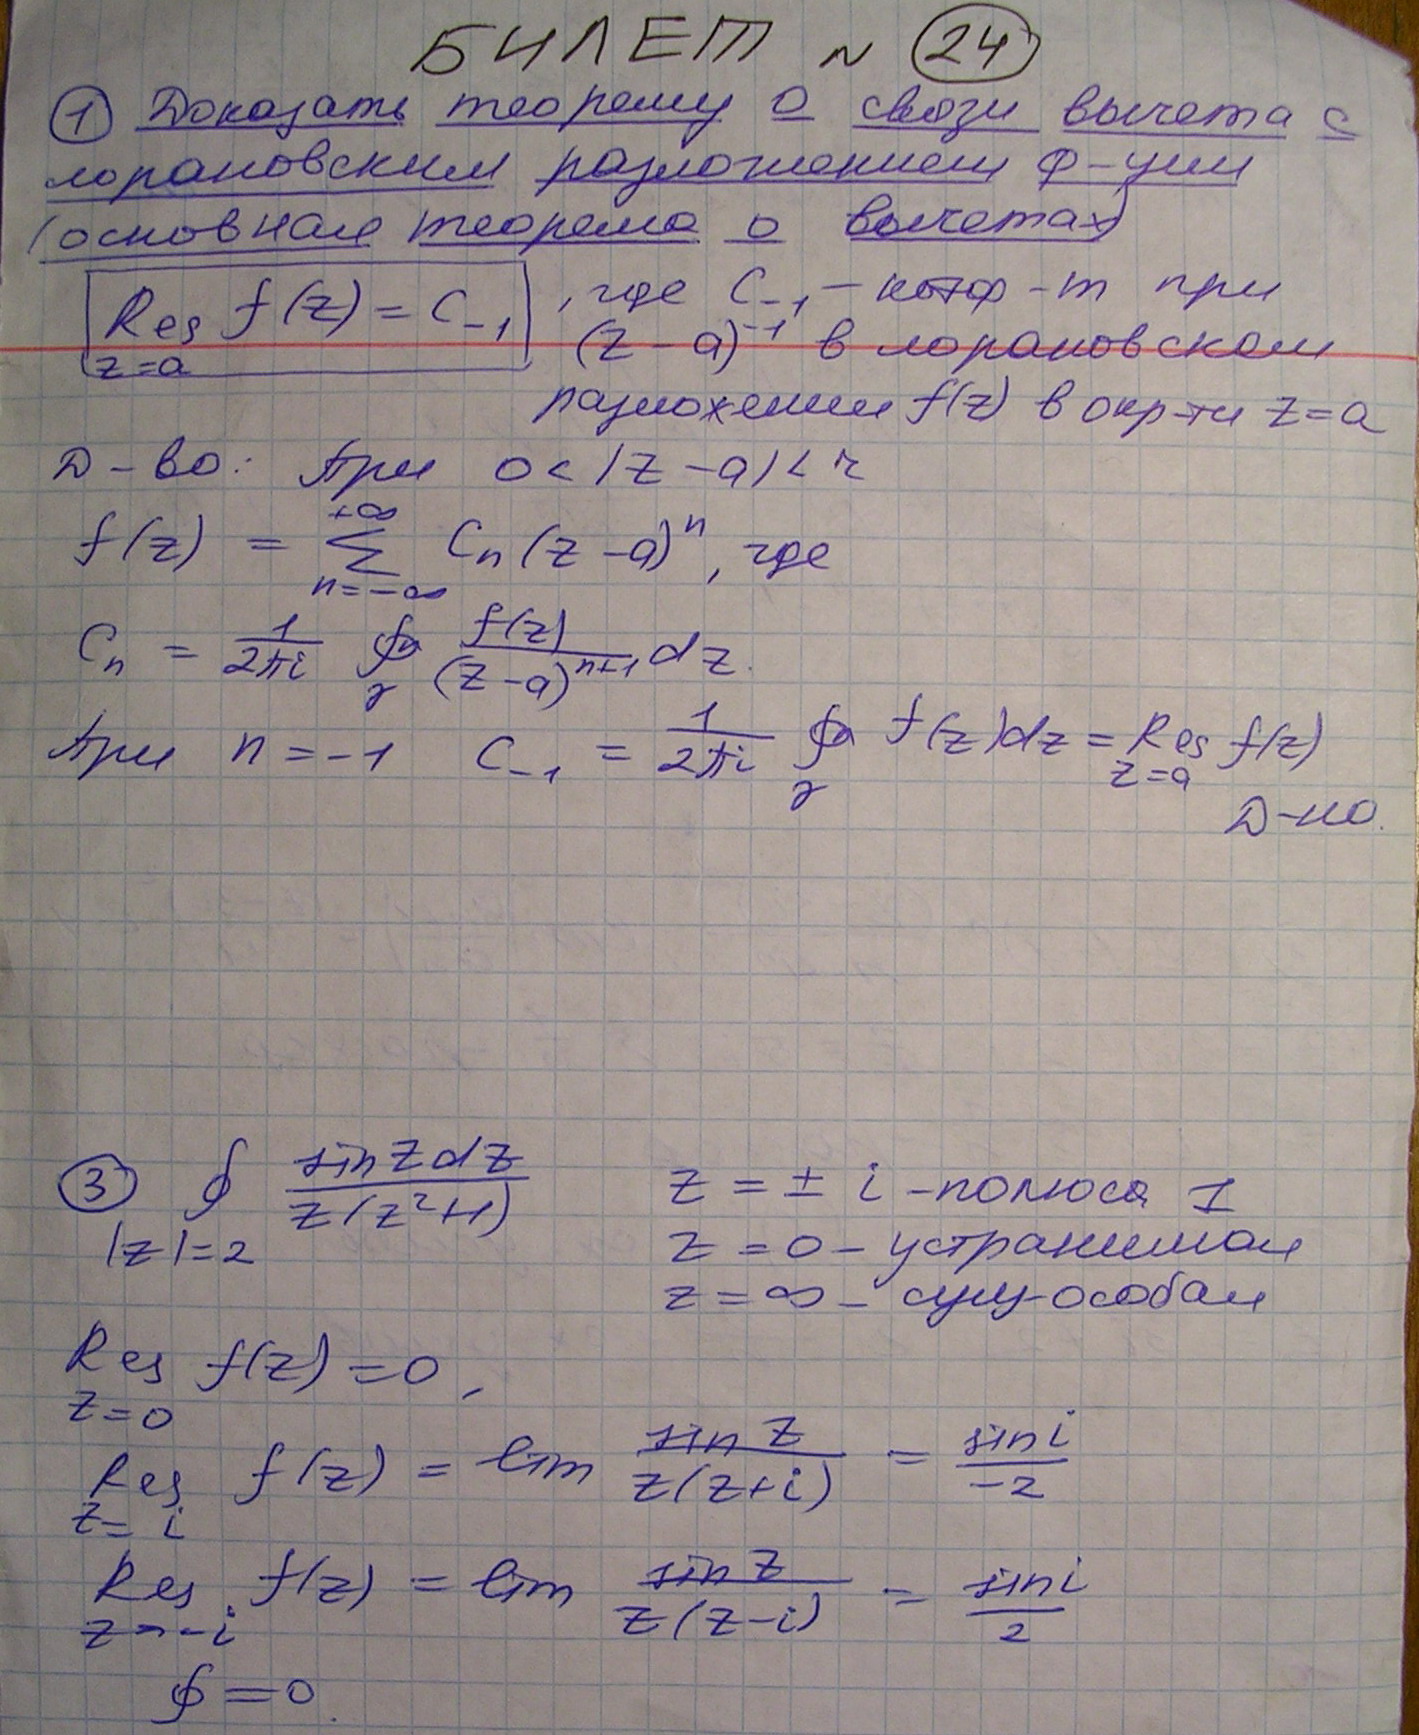 БИЛЕТ N 24
① Доказать теорему о связи вычета с
лорановским разложением ф-ции
(основная теорема о вычетах)
Res f(z) = C₋₁ , где C₋₁ – коэф-т при
z=a (z-a)⁻¹ в лорановском
разложении f(z) в окр-ти z=a
Д-во: При 0<|z-a|<r
f(z) = ∑ Cₙ(z-a)ⁿ, где
+∞
n=-∞
Cₙ = 1/2πi ∮γ f(z)/(z-a)ⁿ⁺¹ dz.
При n=-1 C₋₁ = 1/2πi ∮γ f(z)dz = Res f(z)
z=a
Д-но.
③ ∮ sinzdz / z(z²+1) z = ± i – полюса 1
|z|=2 z = 0 – устранимая
z = ∞ – сущ-особая
Res f(z) = 0,
z=0
Res f(z) = lim sin z / z(z+i) = sin i / -2
z=i
Res f(z) = lim sin z / z(z-i) = sin i / 2
z=-i
∮ = 0.